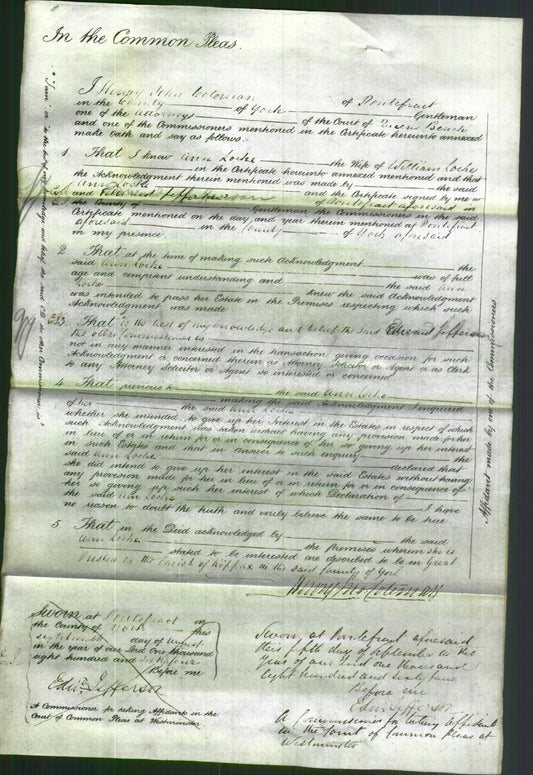 In the Common Pleas.
I Henry John Coleman of Pontefract
in the County of York Gentleman
one of the Attorneys of the Court of Queens Bench
and one of the Commissioners mentioned in the Certificate hereunto annexed
make oath and say as follows.
1 That I know Ann Locke the Wife of William Locke
in the Certificate hereunto annexed mentioned and that
the Acknowledgment therein mentioned was made by the said
Ann Locke and the Certificate signed by me
and Edward Jefferson of Pontefract aforesaid in
the County Gentleman the Commissioners in the said
Certificate mentioned on the day and year therein mentioned at Pontefract
aforesaid in the County of York aforesaid
in my presence.
2 That at the time of making such Acknowledgment the
said Ann Locke was of full
age and competent understanding and the said Ann
Locke knew the said Acknowledgment
was intended to pass her Estate in the Premises respecting which such
Acknowledgment was made
3 That to the best of my knowledge and belief the said Edward Jefferson
the other Commissioner is
not in any manner interested in the transaction giving occasion for such
Acknowledgment or concerned therein as Attorney Solicitor or Agent or as Clerk
to any Attorney Solicitor or Agent so interested or concerned.
4 That previous to the said Ann Locke
making the said Acknowledgment I inquired
of her the said Ann Locke
whether she intended to give up her Interest in the Estates in respect of which
such Acknowledgment was taken without having any provision made for her
in lieu of or in return for or in consequence of her so giving up her interest
in such Estates and that in answer to such enquiry the
said Ann Locke declared that
she did intend to give up her interest in the said Estates without having
any provision made for her in lieu of or in return for or in consequence of
her so giving up such her interest of which Declaration of
the said Ann Locke I have
no reason to doubt the truth and verily believe the same to be true.
5 That in the Deed acknowledged by the said
Ann Locke the Premises wherein she is
stated to be interested are described to be in Great
Preston in the Parish of Kippax in the said County of York
Henry Jno Coleman
Sworn at Pontefract in
the County of York this
day of August
in the year of our Lord One thousand
eight hundred and sixty four
Before me
Edwd Jefferson
A Commissioner for taking Affidavits in the
Court of Common Pleas at Westminster
Sworn at Pontefract aforesaid
this fifth day of September in the
Year of our Lord One thousand
Eight hundred and sixty four
Before me
Edwd Jefferson
A Commissioner for taking Affidavits
in the Court of Common Pleas at
Westminster
Affidavit made by one of the Commissioners